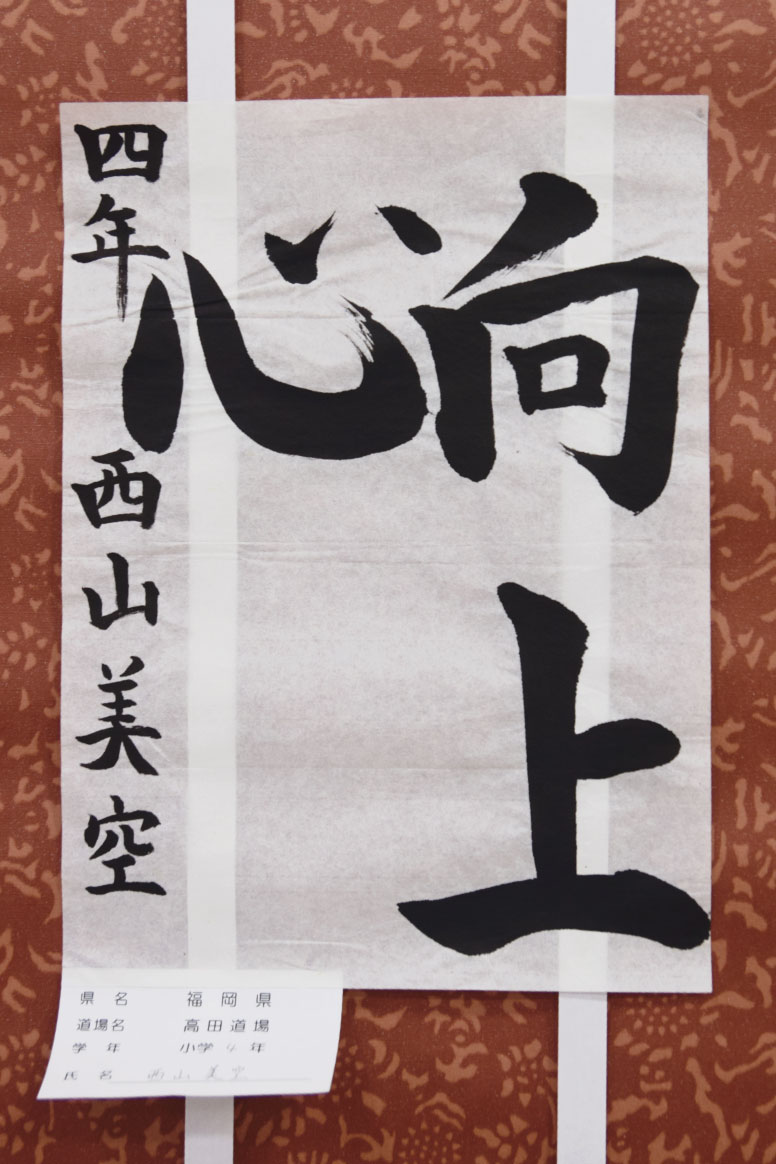 向上
心
四年 西山美空
県名 福岡県
道場名 高田道場
学年 小学4年
氏名 西山美空